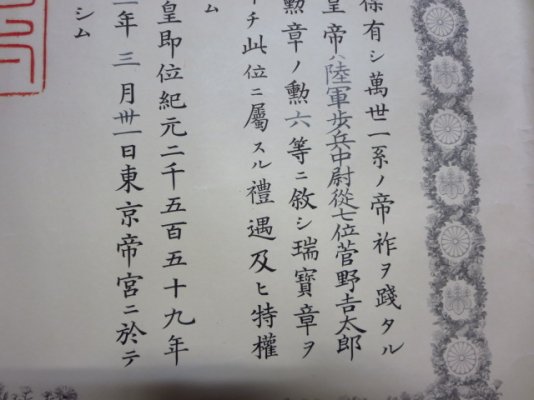 保有シ萬世一系ノ帝祚ヲ踐タル
皇帝ハ陸軍步兵中尉從七位菅野𠮷太郎
勲章ノ勲六等ニ敘シ瑞寶章ヲ
チ此位ニ屬スル禮遇及ヒ特權
ム
皇即位紀元二千五百五十九年
年三月卅一日東京帝宮ニ於テ
シム